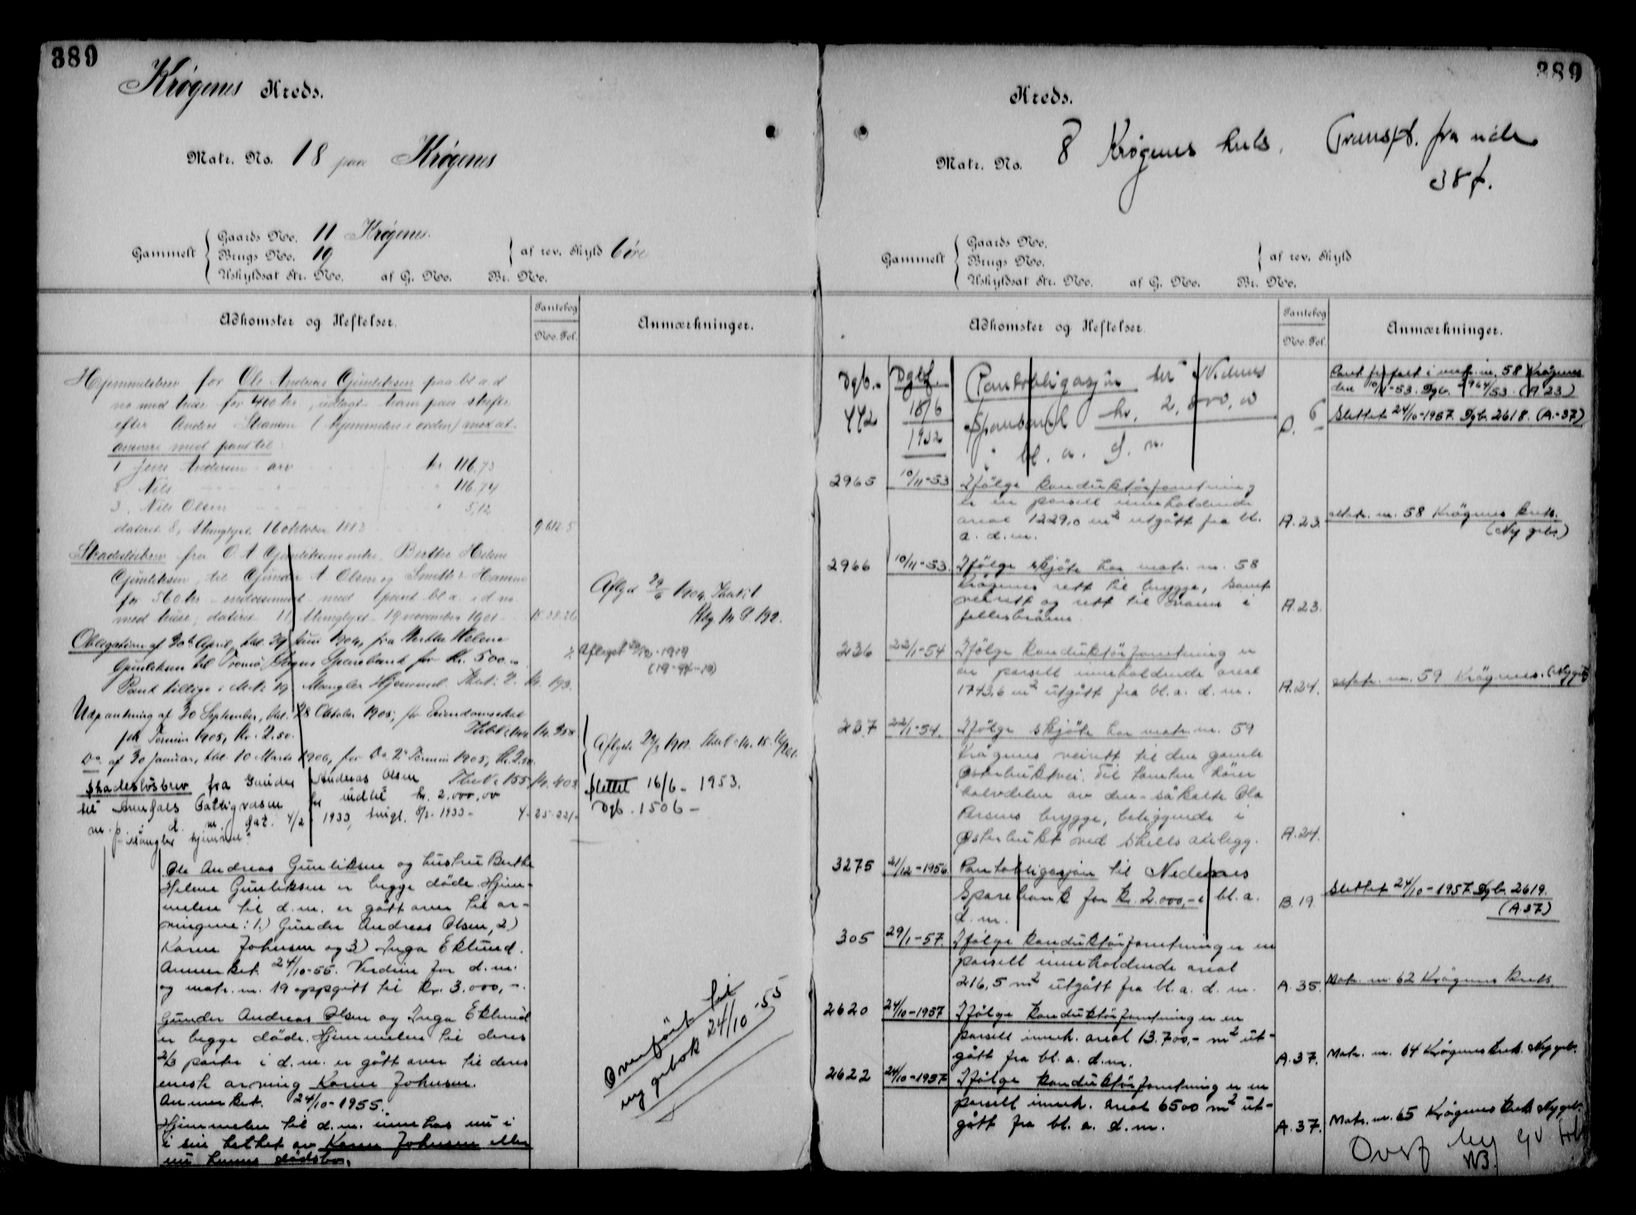 389
Krøgenes Kreds.
Matr. No. 18 paa Krøgenes
Gammelt
Gaards No. 11 Krøgenes.
Brugs No. 19
af rev. Skyld 6 øre
Uskyldsat Str. No. af G. No. Br. No.
Adkomster og Heftelser.
Pantebog
No. Fol.
Anmærkninger.
Hjemmelsbrev for Ole Andreas Gjunleksen paa bl. a. d
no med huse for 400 kr, udlagt ham paa skifte
efter Anders
ansvare med pant til:
1 Jens Andersen arv kr 116,73
2 Nils 116,74
3. Nils Olsen 5,12
dateret 8, thinglyst 16 oktober 1883
Skadesløsbrev fra O A Gjunleksens enke, Berthe Helene
Gjunleksen, til Gjunder A. Olsen og
for 560 kr med pant bl. a. i d no
med huse, dateret thinglyst 19 november 1901
Aflyst 29/6 1904,
Obligation af 20de April, thl. 29 Juni 1904, fra Berthe Helene
Gunleksen til Tromø Sogns Sparebank for Kr. 500.
Pant tillige i Matr. 19 Mangler Hjemmel
Aflyst 1919
(19-94-19)
Udpantning af 30 September, thl. 28 Oktober 1905, for Eiendomsskat
for Termin 1905, Kr. 2.50.
Do af 30 Januar, thl. 10 Marts 1906, for Do 2 Termin 1905, Kr. 2.50.
Skadesløsbrev fra Gunder Andreas Olsen
til Arendals Fattigvæsen for indtil kr. 2.000,00
m. p. d. m. Dat. 4/2 1933, tingl. 1933 - 4-25-221
"Mangler hjemmel"
Slettet 16/6 - 1953.
Dgb. 1506 -
Ole Andreas Gunleksen og hustru Berthe
Helene Gunleksen er begge døde. Hjem-
melen til d. m. er gått over til ar-
vingene: 1.) Gunder Andreas Olsen, 2)
Karen Johnsen og 3) Inga Eklund.
Anmerket. 24/10-55. Verdien for d. m.
og matr. nr. 19 oppgitt til kr. 3.000,-.
Gunder Andreas Olsen og Inga Eklund
er begge døde. Hjemmelen til deres
2/3 parter i d. m. er gått over til deres
eneste arving Karen Johnsen.
Anmerket. 24/10-1955.
Hjemmelen til d. m. innehas nu i
i sin helhet av Karen Johnsen eller
nu hennes dødsbo.
Overført til
ny gebok 24/10 .55
389
Kreds.
Matr. No. 8 Krøgenes kreds. Transpt. fra side
387.
Gammelt
Gaards No.
Brugs No.
af rev. Skyld
Uskyldsat Str. No. af G. No. Br. No.
Adkomster og Heftelser.
Pantebog
No. Fol.
Anmærkninger.
Dgb. Dgbf
442 18/6 1932 Pantobligasjon til Nidenes
Sparebank kr. 2.000,00
i bl. a. d. m.
Pant frafalt i matr. nr. 58 Krøgenes
den 10/11-53. Dgb. 2964/53. (A 23)
Slettet 24/10-1957. Dgb. 2618. (A.-37)
2965 10/11-53 Ifølge konduktørforretning
er en parsell inneholdende
areal 1229,0 m² utgått fra bl.
a. d. m. A. 23. matr. nr. 58 Krøgenes kreds.
(Ny geb.)
2966 10/11-53. Ifølge skjøte har matr. nr. 58
Krøgenes rett til brygge, samt
veirett og rett til vann i
fellesbrønn. A. 23.
236 22/1-54 Ifølge konduktørforretning er
en parsell inneholdende areal
1743,6 m² utgått fra bl. a. d. m. A. 24. matr. nr. 59 Krøgenes. (Ny geb)
237 22/1-54. Ifølge skjøte har matr. nr. 59
Krøgenes veirett til den gamle
Østerbuktvei. Til tomten hører
halvdelen av den såkalte Ola
Larsens brygge, beliggende i
Østerbukt ved Skills anlegg. A. 24.
3275 21/12-1956 Pantobligasjon til Nedenes
Sparebank for kr. 2.000,- i bl. a.
d. m. B. 19. Slettet 24/10-1957 Dgb. 2619.
(A 37)
305 29/1-57. Ifølge konduktørforretning er en
parsell inneholdende areal
216,5 m² utgått fra bl. a. d. m. A. 35. Matr. nr. 62 Krøgenes kreds
2620 24/10-1957 Ifølge konduktørforretning er en
parsell inneh. areal 13.700,- m² ut-
gått fra bl. a. d. m. A. 37. Matr. nr. 64 Krøgenes kreds. Ny geb.
2622 24/10-1957 Ifølge konduktørforretning er en
parsell inneh. areal 6500 m² ut-
gått fra bl. a. d. m. A. 37. Matr. nr. 65 Krøgenes kreds Ny geb.
Overf ny